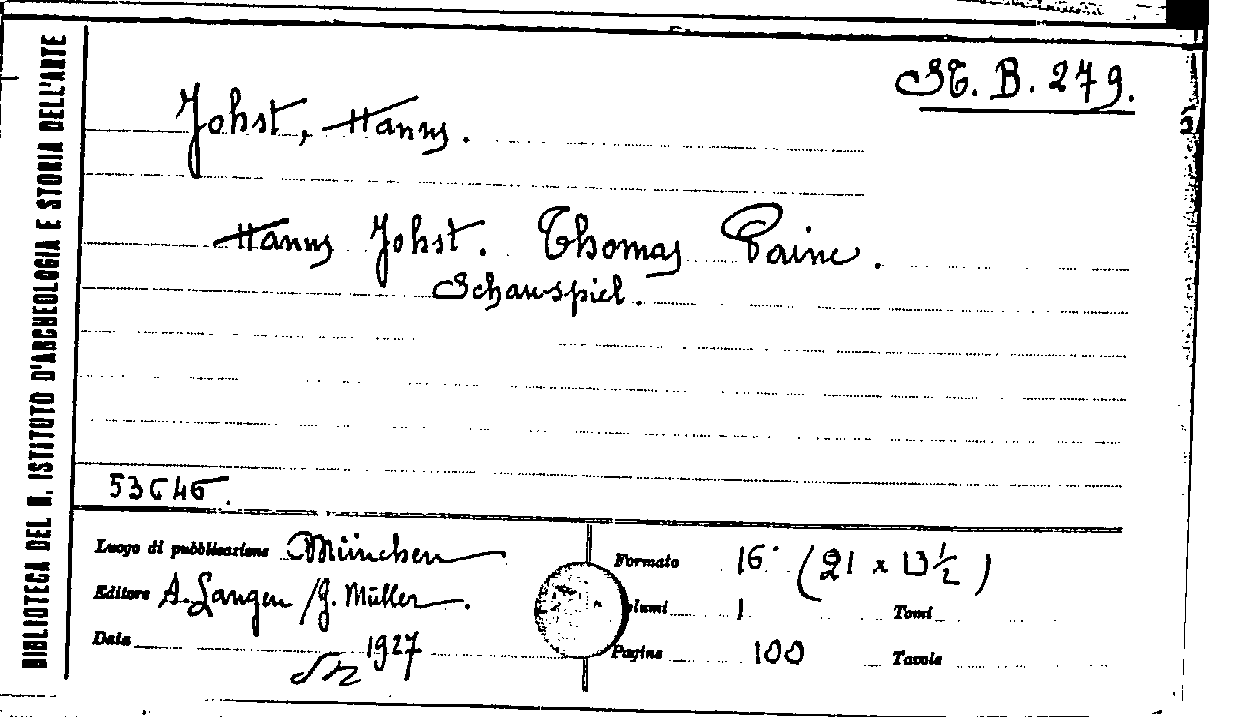 BIBLIOTECA DEL R. ISTITUTO D'ARCHEOLOGIA E STORIA DELL'ARTE
St. B. 279.
Johst, Hanns.
Hanns Johst. Thomas Paine.
Schauspiel.
53646.
Luogo di pubblicazione München
Editore A. Langen / G. Müller.
Data 1927
Formato 16° (21 x 13 1/2)
lumi 1 Tomi
Pagine 100 Tavole